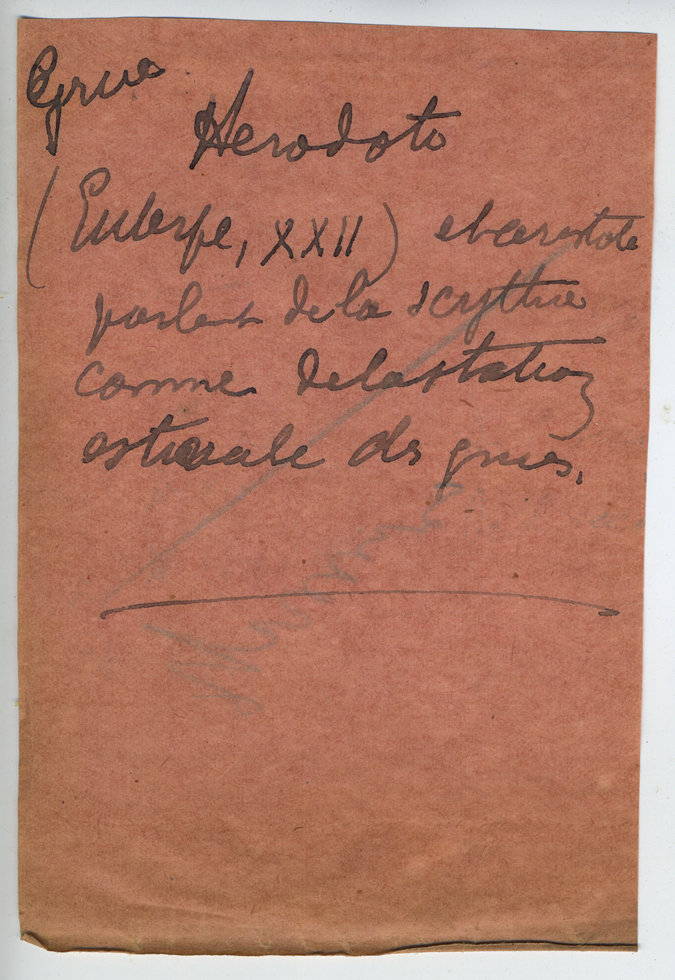 Grue
Herodoto
(Euterpe, XXII) et aristote
parlent de la scythie
comme de la station
estivale des grues.